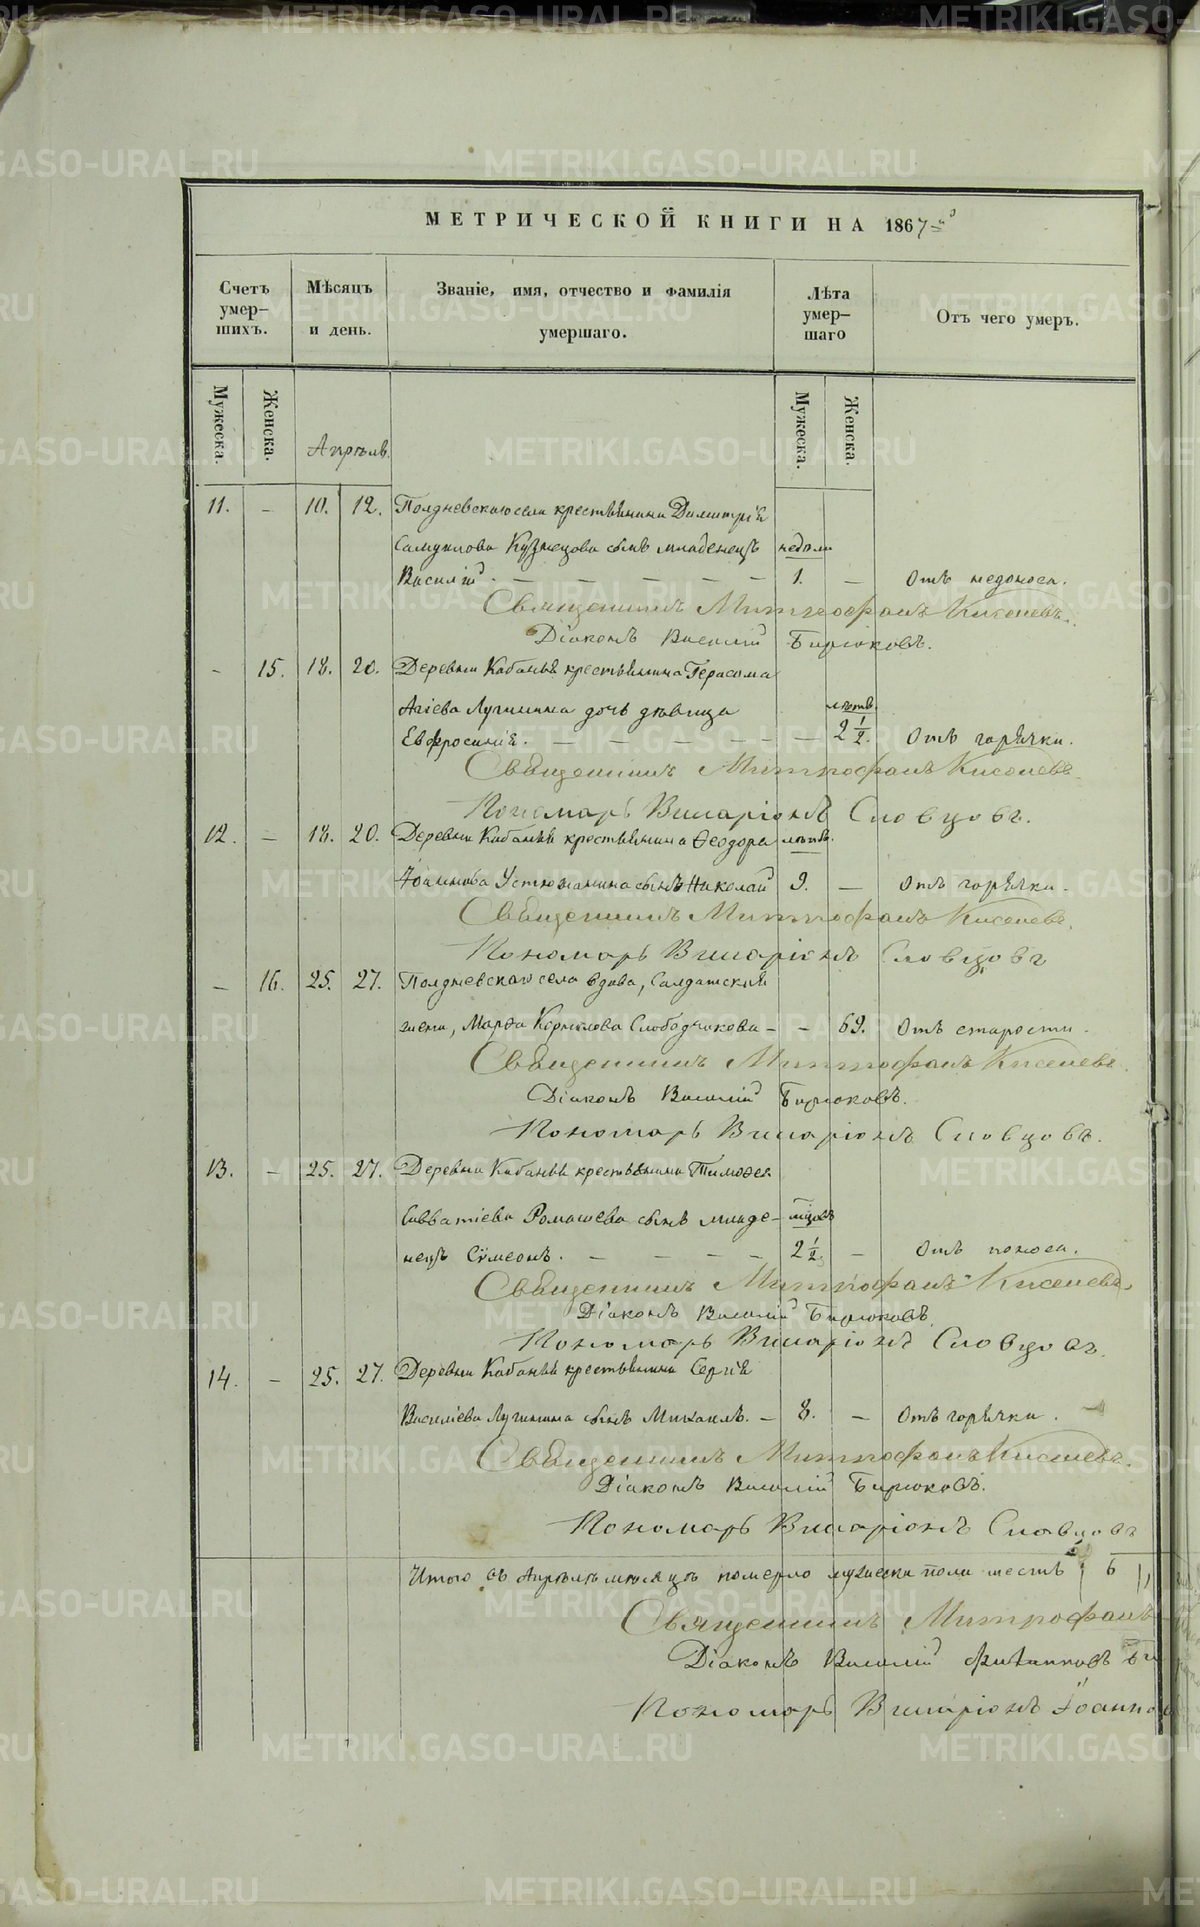 МЕТРИЧЕСКОЙ КНИГИ НА 1867-й
Счетъ умер-шихъ.
Мѣсяцъ и день.
Званіе, имя, отчество и фамилія умершаго.
Лѣта умер-шаго
Отъ чего умеръ.
Мужеска.
Женска.
Апрѣль.
Мужеска.
Женска.
11. – 10. 12. Полдневскаго села крестьянина Димитрія
Самуилова Кузнецова сынъ младенецъ недѣли
Василій. – – – – – 1. – Отъ недоноса.
Священникъ Митрофанъ Киселевъ.
Діаконъ Василій Бирюковъ.
– 15. 18. 20. Деревни Кабаньей крестьянина Герасома
Агіева Лугинина дочь дѣвица лѣтъ.
Евфросинія. – – – – – – 2 1/2. Отъ горячки.
Священникъ Митрофанъ Киселевъ
Пономарь Виларіонъ Словцовъ.
12. – 18. 20. Деревни Кабаньей крестьянина Ѳеодора лѣтъ.
Іоаннова Устюжанина сынъ Николай 9. – Отъ горячки.
Священникъ Митрофанъ Киселевъ.
Пономарь Виларіонъ Словцовъ
– 16. 25. 27. Полдневскаго села вдова, Салдатская
жена, Марѳа Корнилова Слободчикова – – 69. Отъ старости.
Священникъ Митрофанъ Киселевъ.
Діаконъ Василій Бирюковъ.
Пономарь Виларіонъ Словцовъ.
13. – 25. 27. Деревни Кабаньей крестьянина Тимоѳея
Савватіева Ромашева сынъ младе- мцовъ
нецъ Сѵмеонъ. – – – – 2 1/2 – Отъ поноса.
Священникъ Митрофанъ Киселевъ.
Діаконъ Василій Бирюковъ.
Пономарь Виларіонъ Словцовъ.
14. – 25. 27. Деревни Кабаньей крестьянина Сергія
Василіева Лугинина сынъ Михаилъ. – 8. – Отъ горячки. –
Священникъ Митрофанъ Киселевъ.
Діаконъ Василій Бирюковъ.
Пономарь Виларіонъ Словцовъ
Итого въ Апрѣлѣ мѣсяцѣ померло мужеска пола шесть 6
Священникъ Митрофанъ
Діаконъ Василій Би
Пономарь Виларіонъ Іоанно
METRIKI.GASO-URAL.RU